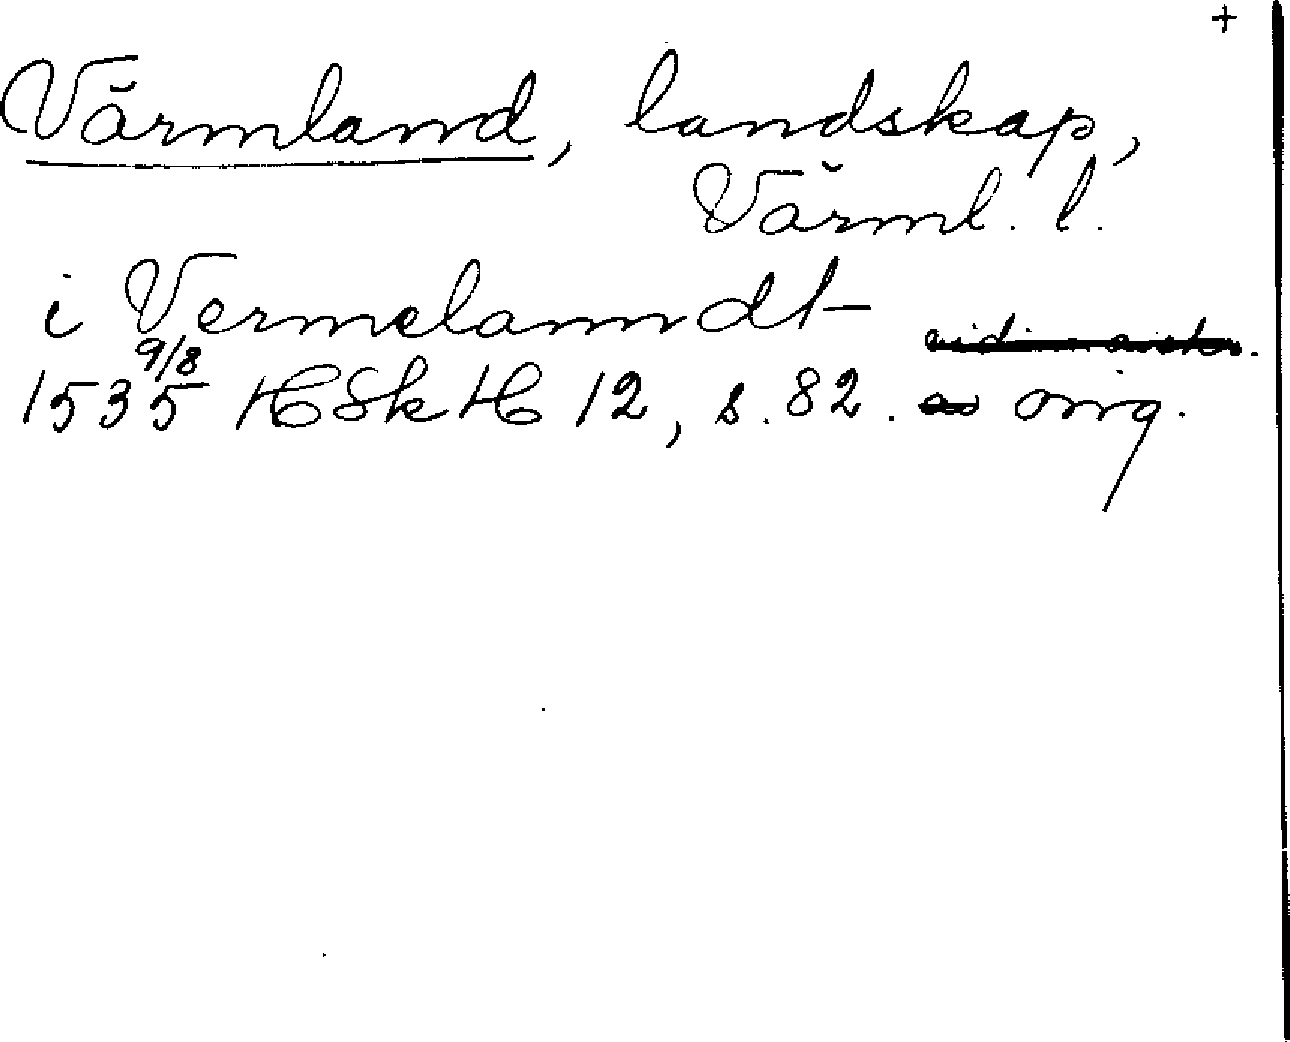 +
Värmland, landskap,
Värml. l.
i Vermelanndt
9/8
1535 HSkH 12, s. 82. orig.